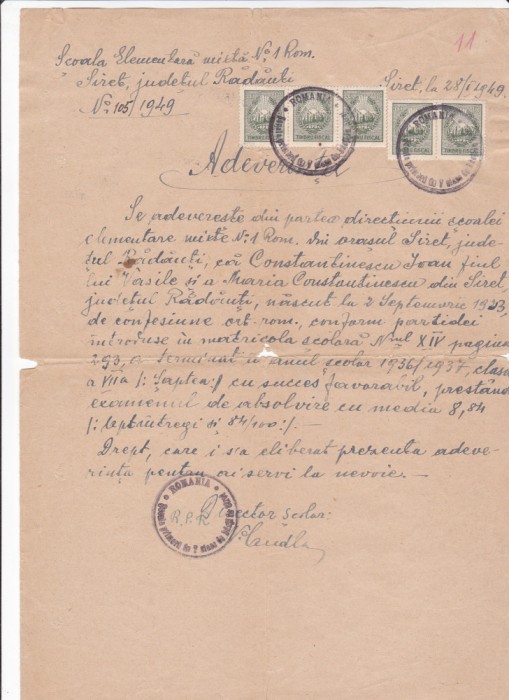 11
Școala Elementară mixtă No. 1 Rom.
Siret, județul Rădăuți
Siret, la 28/I 1949.
No. 105/1949
ROMANIA
TIMBRU FISCAL TIMBRU FISCAL TIMBRU FISCAL TIMBRU FISCAL
Adeverință
Se adeverește din partea direcțiunii școalei
elementare mixte No. 1 Rom. din orașul Siret, jude-
țul Rădăuți, că Constantinescu Ioan fiul
lui Vasile și a Maria Constantinescu din Siret,
județul Rădăuți, născut la 2 Septemvrie 1923,
de confesiune ort. rom., conform partidei
introduse in matricola școlară Nrul XIV pagina
293, a terminat în anul școlar 1936/1937, clasa
a VII a /: șaptea:/ cu succes favorabil, prestând
examenul de absolvire cu media 8,84
/: opt întregi și 84/100:/. –
Drept, care i s'a eliberat prezenta adeve-
rință pentru a-i servi la nevoie. –
ROMANIA
R.P.R.
Director școlar: